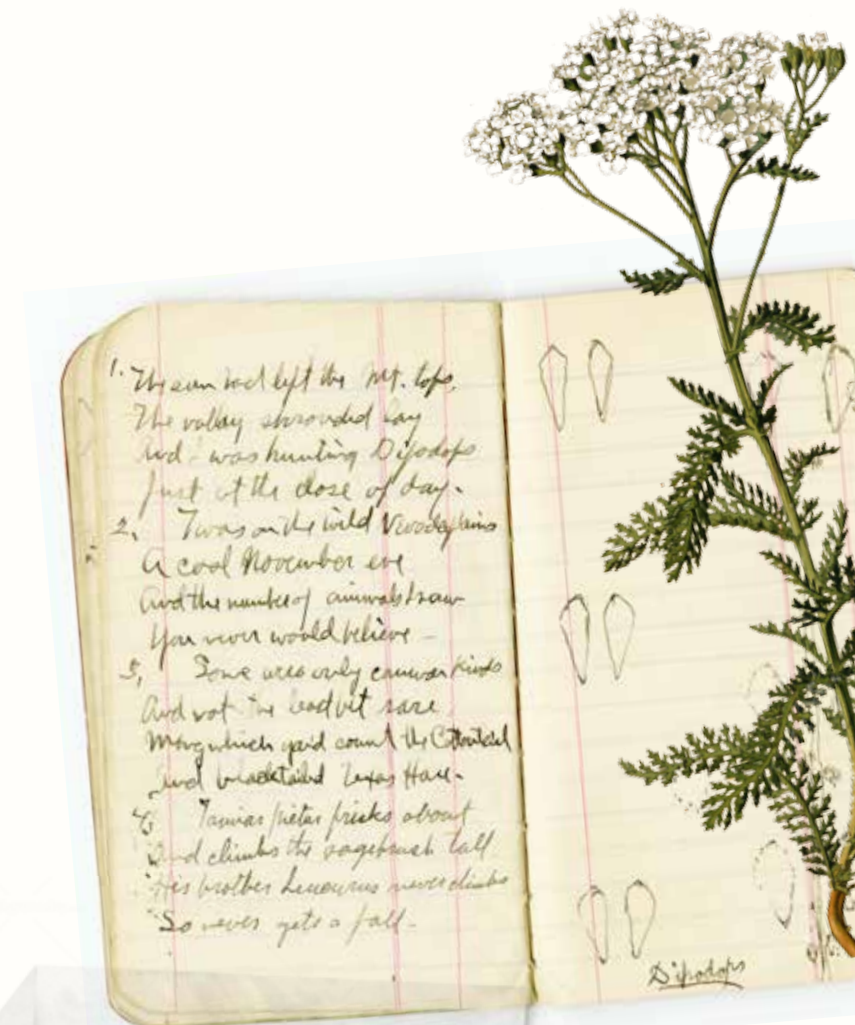 1. The sun had left the Mt. tops.
The valley shrouded lay
And I was hunting Dipodops
Just at the close of day.
2. Twas on the wild
A cool November eve
And the number of animals I saw
You never would believe —
3, Some were only common kinds
And not the least bit rare
Among which you'd count the Cottontail
And blacktailed Texas Hare.
Tamias pictus frisks about
And climbs the sagebrush tall
His brother leucurus never climbs
So never gets a fall.
Dipodops